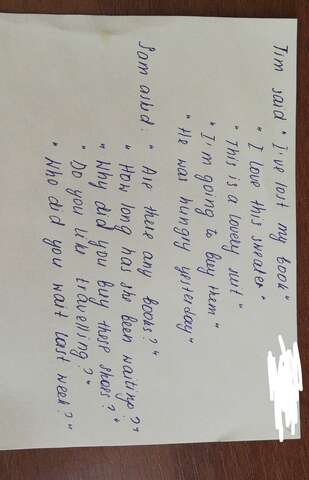 Tim said "I've lost my book"
"I love this sweater"
"This is a lovely suit"
"I'm going to buy them"
"He was hungry yesterday"
Sam asked: "Are there any books?"
"How long has she been waiting?"
"Why did you buy these shoes?"
"Do you like travelling?"
"Who did you wait last week?"